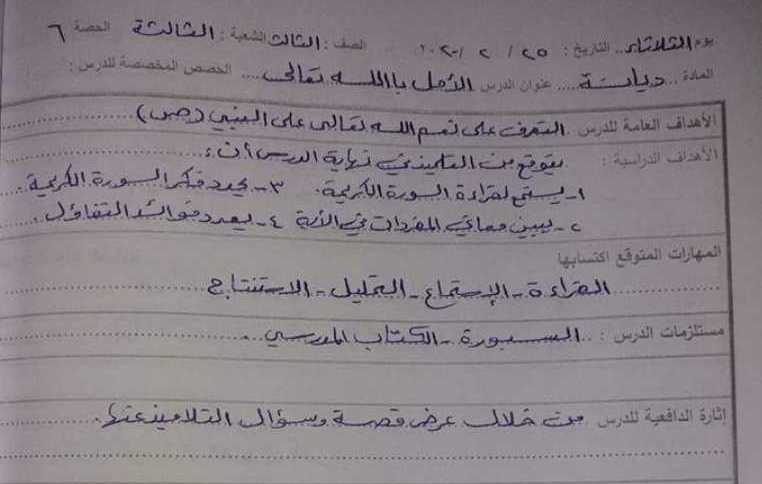 يوم الثلاثاء.. التاريخ : ٢٥ / ٢ / ٢٠٢٠ الصف : الثالث الشعبة : الثالثة الحصة ٦
المادة ..ديانــة.... عنوان الدرس الأمل بالله تعالى.... الحصص المخصصة للدرس :
الأهداف العامة للدرس التعرف على نعم الله تعالى على النبي (ص)
الأهداف الدراسية : يتوقع من التلميذ في نهاية الدرس أن :
١- يستمع لقراءة السورة الكريمة. ٣- يحدد فكر السورة الكريمة.
٢- يبين معاني المفردات في الآية ٤- يعدد فوائد التفاؤل.
المهارات المتوقع اكتسابها
القراءة - الإستماع - التحليل - الاستنتاج
مستلزمات الدرس : .. الســبورة - الكتاب المدرسي
إثارة الدافعية للدرس من خلال عرض قصة وسؤال التلاميذ عنها.